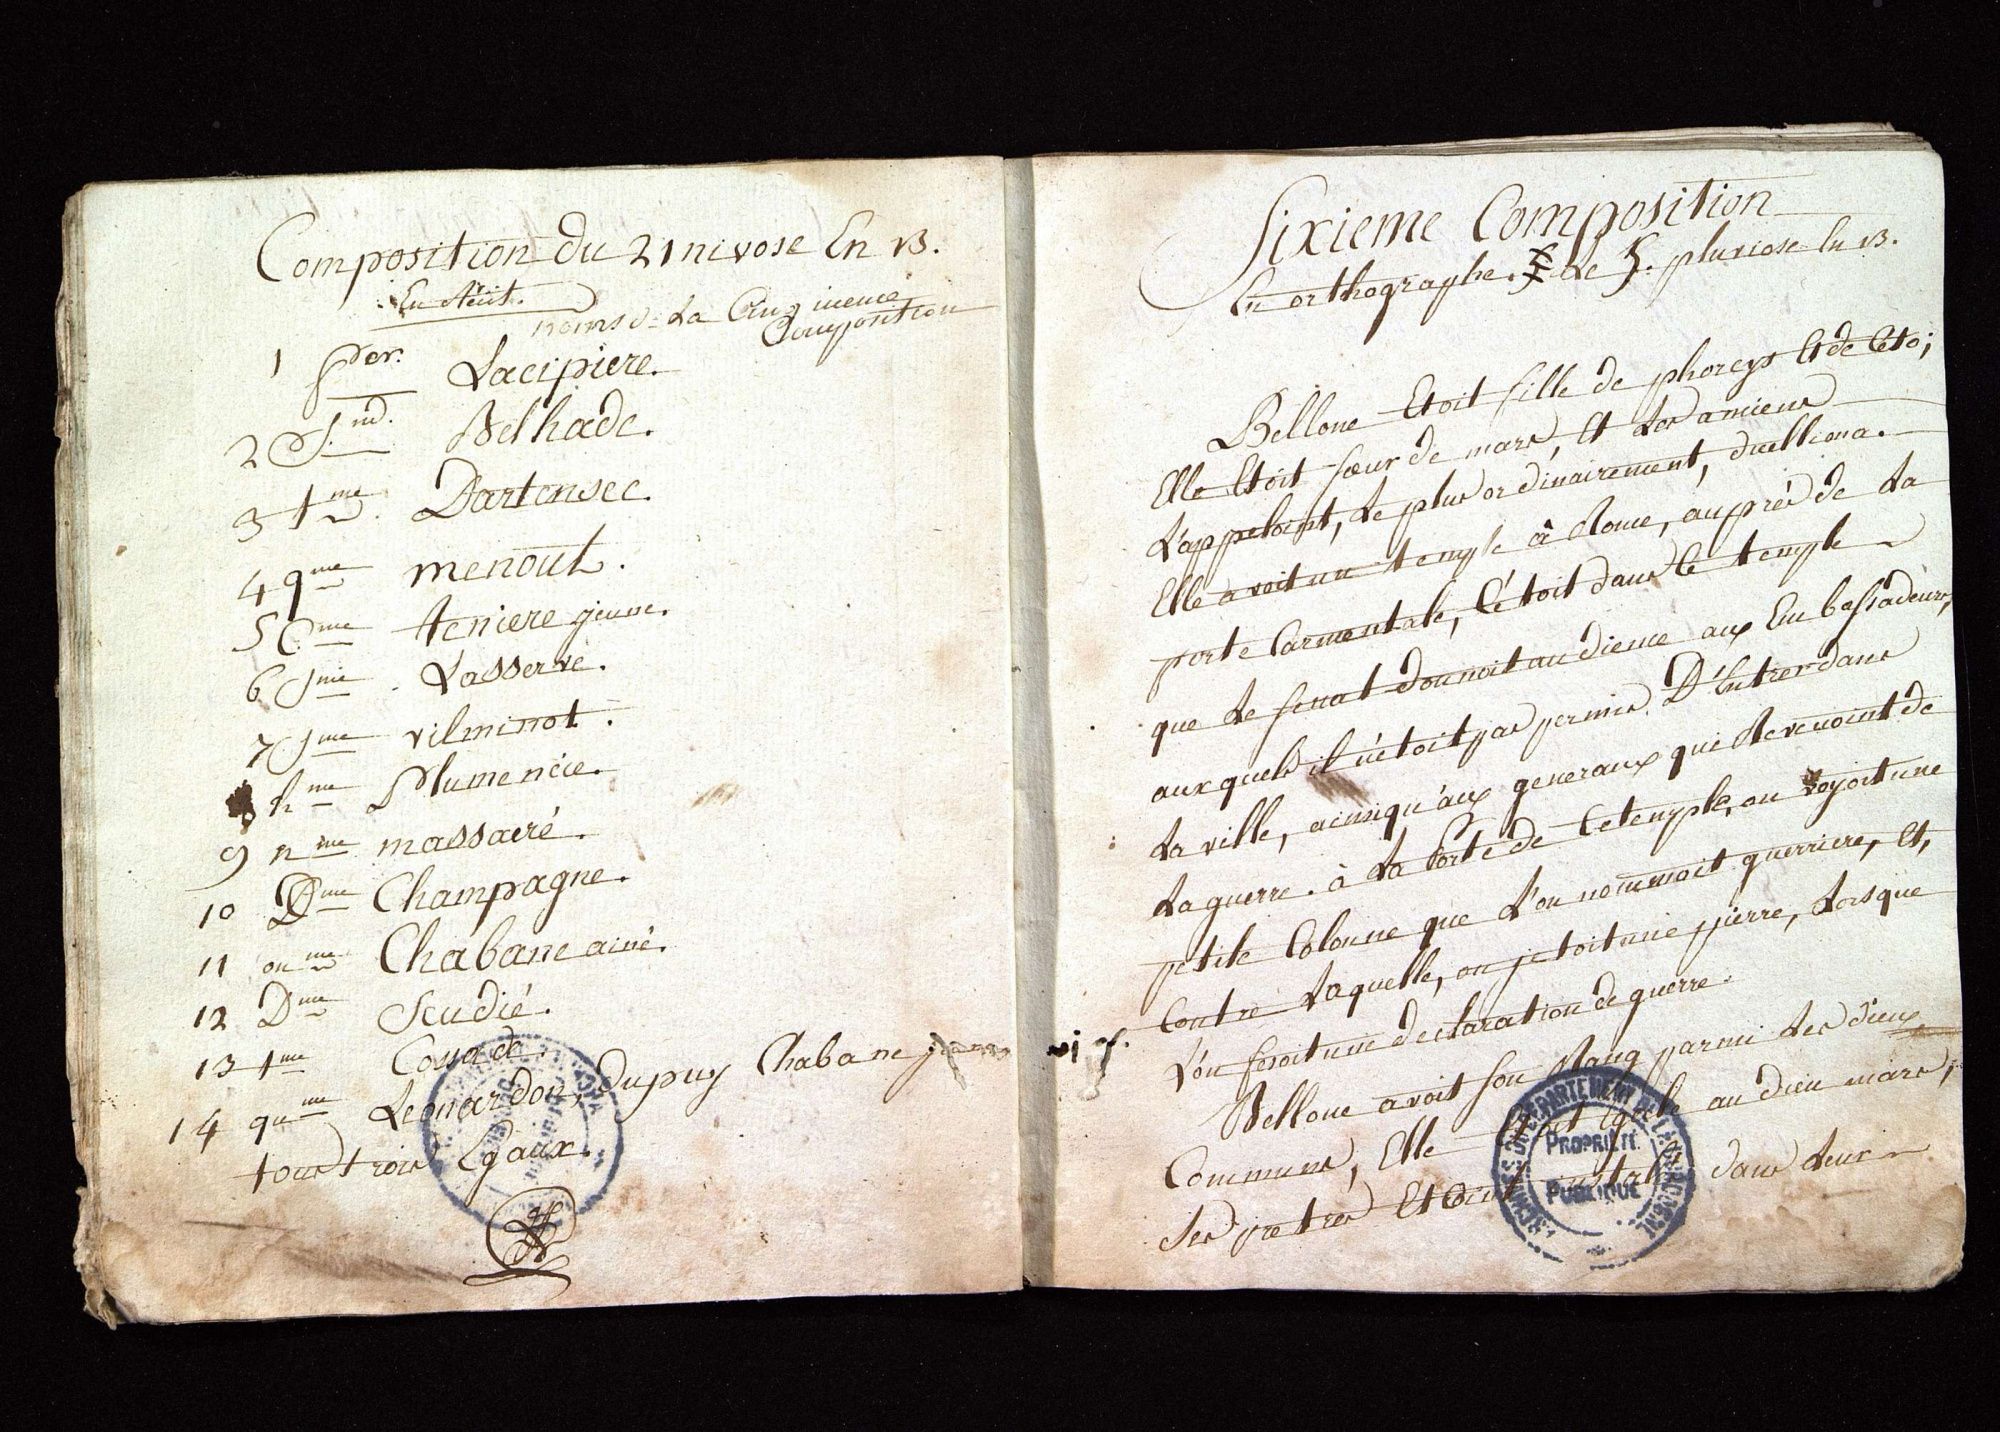 Composition du 21 nivose En 13.
En récit.
noms de La Cinquieme
Composition
1 per. Lacipiere.
2 S.nd. Belhade.
3 tme Dartensec.
4 qme menout.
5 C.me teniere jeune.
6 Sme Lasserve.
7 Sme vilminot.
8 hme Plumencie.
9 nme massacré.
10 Dme Champagne.
11 onme Chabane ainé.
12 Dme Scudié.
13 tme Cossade.
14 qme Leonardon, dupuy Chabane
tous trois Egaux.
Sixieme Composition
En orthographe. Le 5. pluviose En 13.
Bellone Etoit fille de phorcys Et de Ceto;
Elle Etoit sœur de mars, Et Les amiens
L'appeloint, Le plus ordinairement, duelliona.
Elle avoit un temple à Rome, auprés de La
porte Carmentale, C'étoit dans Ce temple
que Le senat donnoit audience aux Embassadeurs,
aux quels il n'étoit pas permis D'Entrer dans
La ville, ainsi qu'aux generaux qui Revenoint de
La guerre. à La Porte de Ce temple, on voyoit une
petite Colonne que L'on nommoit guerriere, Et,
Contre Laquelle, on jetoit une pierre, Lorsque
L'on fesoit une declaration de guerre.
Bellone avoit son Rang parmi Les dieux
Communs, Elle Etoit Egale au dieu mars,
Ses pretres Etoint installés dans Leur
ARCHIVES DU DEPARTEMENT DE LA DORDOGNE
PROPRIÉTÉ
PUBLIQUE